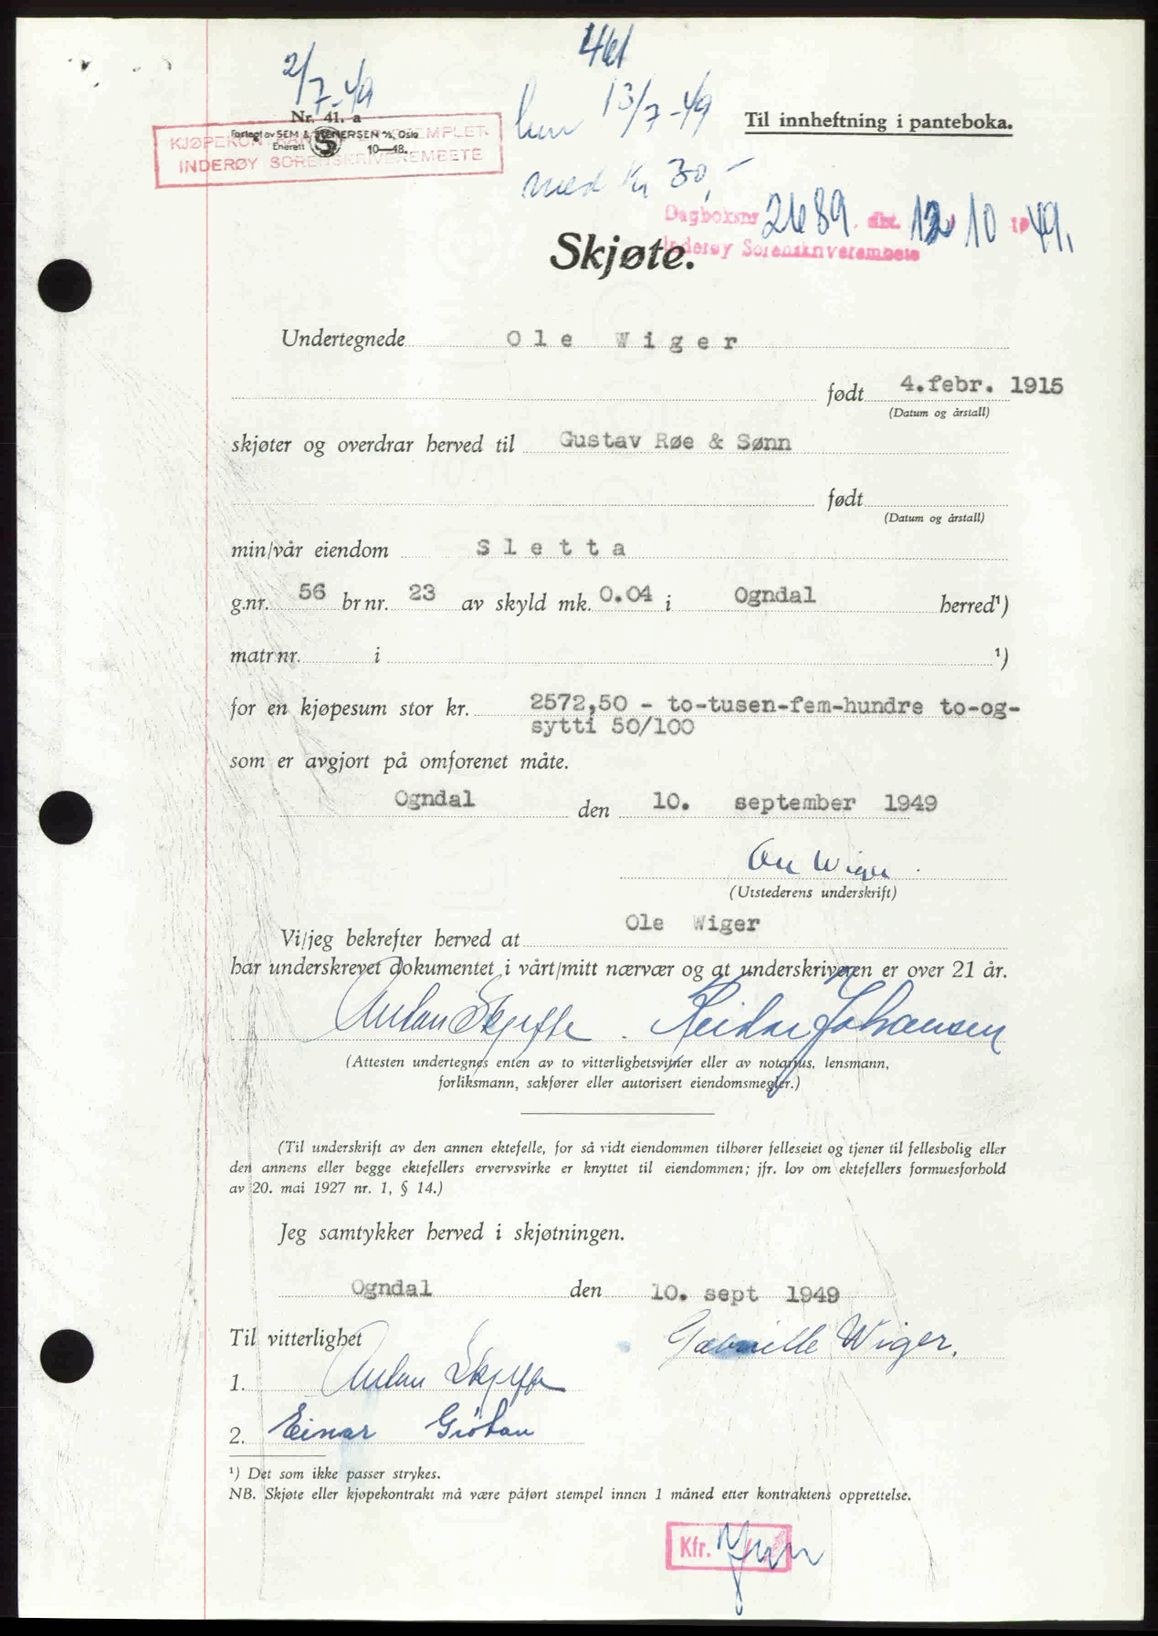 461
2/7-49
13/7-49
Nr. 41. a
Til innheftning i panteboka.
Forlagt av SEM & STENERSEN A/S, Oslo
Enerett 10—48.
INDERØY SORENSKRIVEREMBETE
med Kr 30,-
Dagboksnr 2689. dat. 12/10 1949.
Inderøy Sorenskriverembete
Skjøte.
Undertegnede Ole Wiger
født 4.febr. 1915
(Datum og årstall)
skjøter og overdrar herved til Gustav Røe & Sønn
født
(Datum og årstall)
min/vår eiendom Sletta
g.nr. 56 br.nr. 23 av skyld mk. 0.04 i Ogndal herred¹)
matr.nr. i ¹)
for en kjøpesum stor kr. 2572,50 - to-tusen-fem-hundre to-og-
sytti 50/100
som er avgjort på omforenet måte.
Ogndal den 10. september 1949
Ole Wiger
(Utstederens underskrift)
Vi/jeg bekrefter herved at Ole Wiger
har underskrevet dokumentet i vårt/mitt nærvær og at underskriveren er over 21 år.
Reidar Johansen
(Attesten undertegnes enten av to vitterlighetsvitner eller av notarius, lensmann,
forliksmann, sakfører eller autorisert eiendomsmegler.)
(Til underskrift av den annen ektefelle, for så vidt eiendommen tilhører felleseiet og tjener til fellesbolig eller
den annens eller begge ektefellers ervervsvirke er knyttet til eiendommen; jfr. lov om ektefellers formuesforhold
av 20. mai 1927 nr. 1, § 14.)
Jeg samtykker herved i skjøtningen.
Ogndal den 10. sept 1949
Til vitterlighet
Wiger.
1.
2. Einar
¹) Det som ikke passer strykes.
NB. Skjøte eller kjøpekontrakt må være påført stempel innen 1 måned etter kontraktens opprettelse.
Kfr.